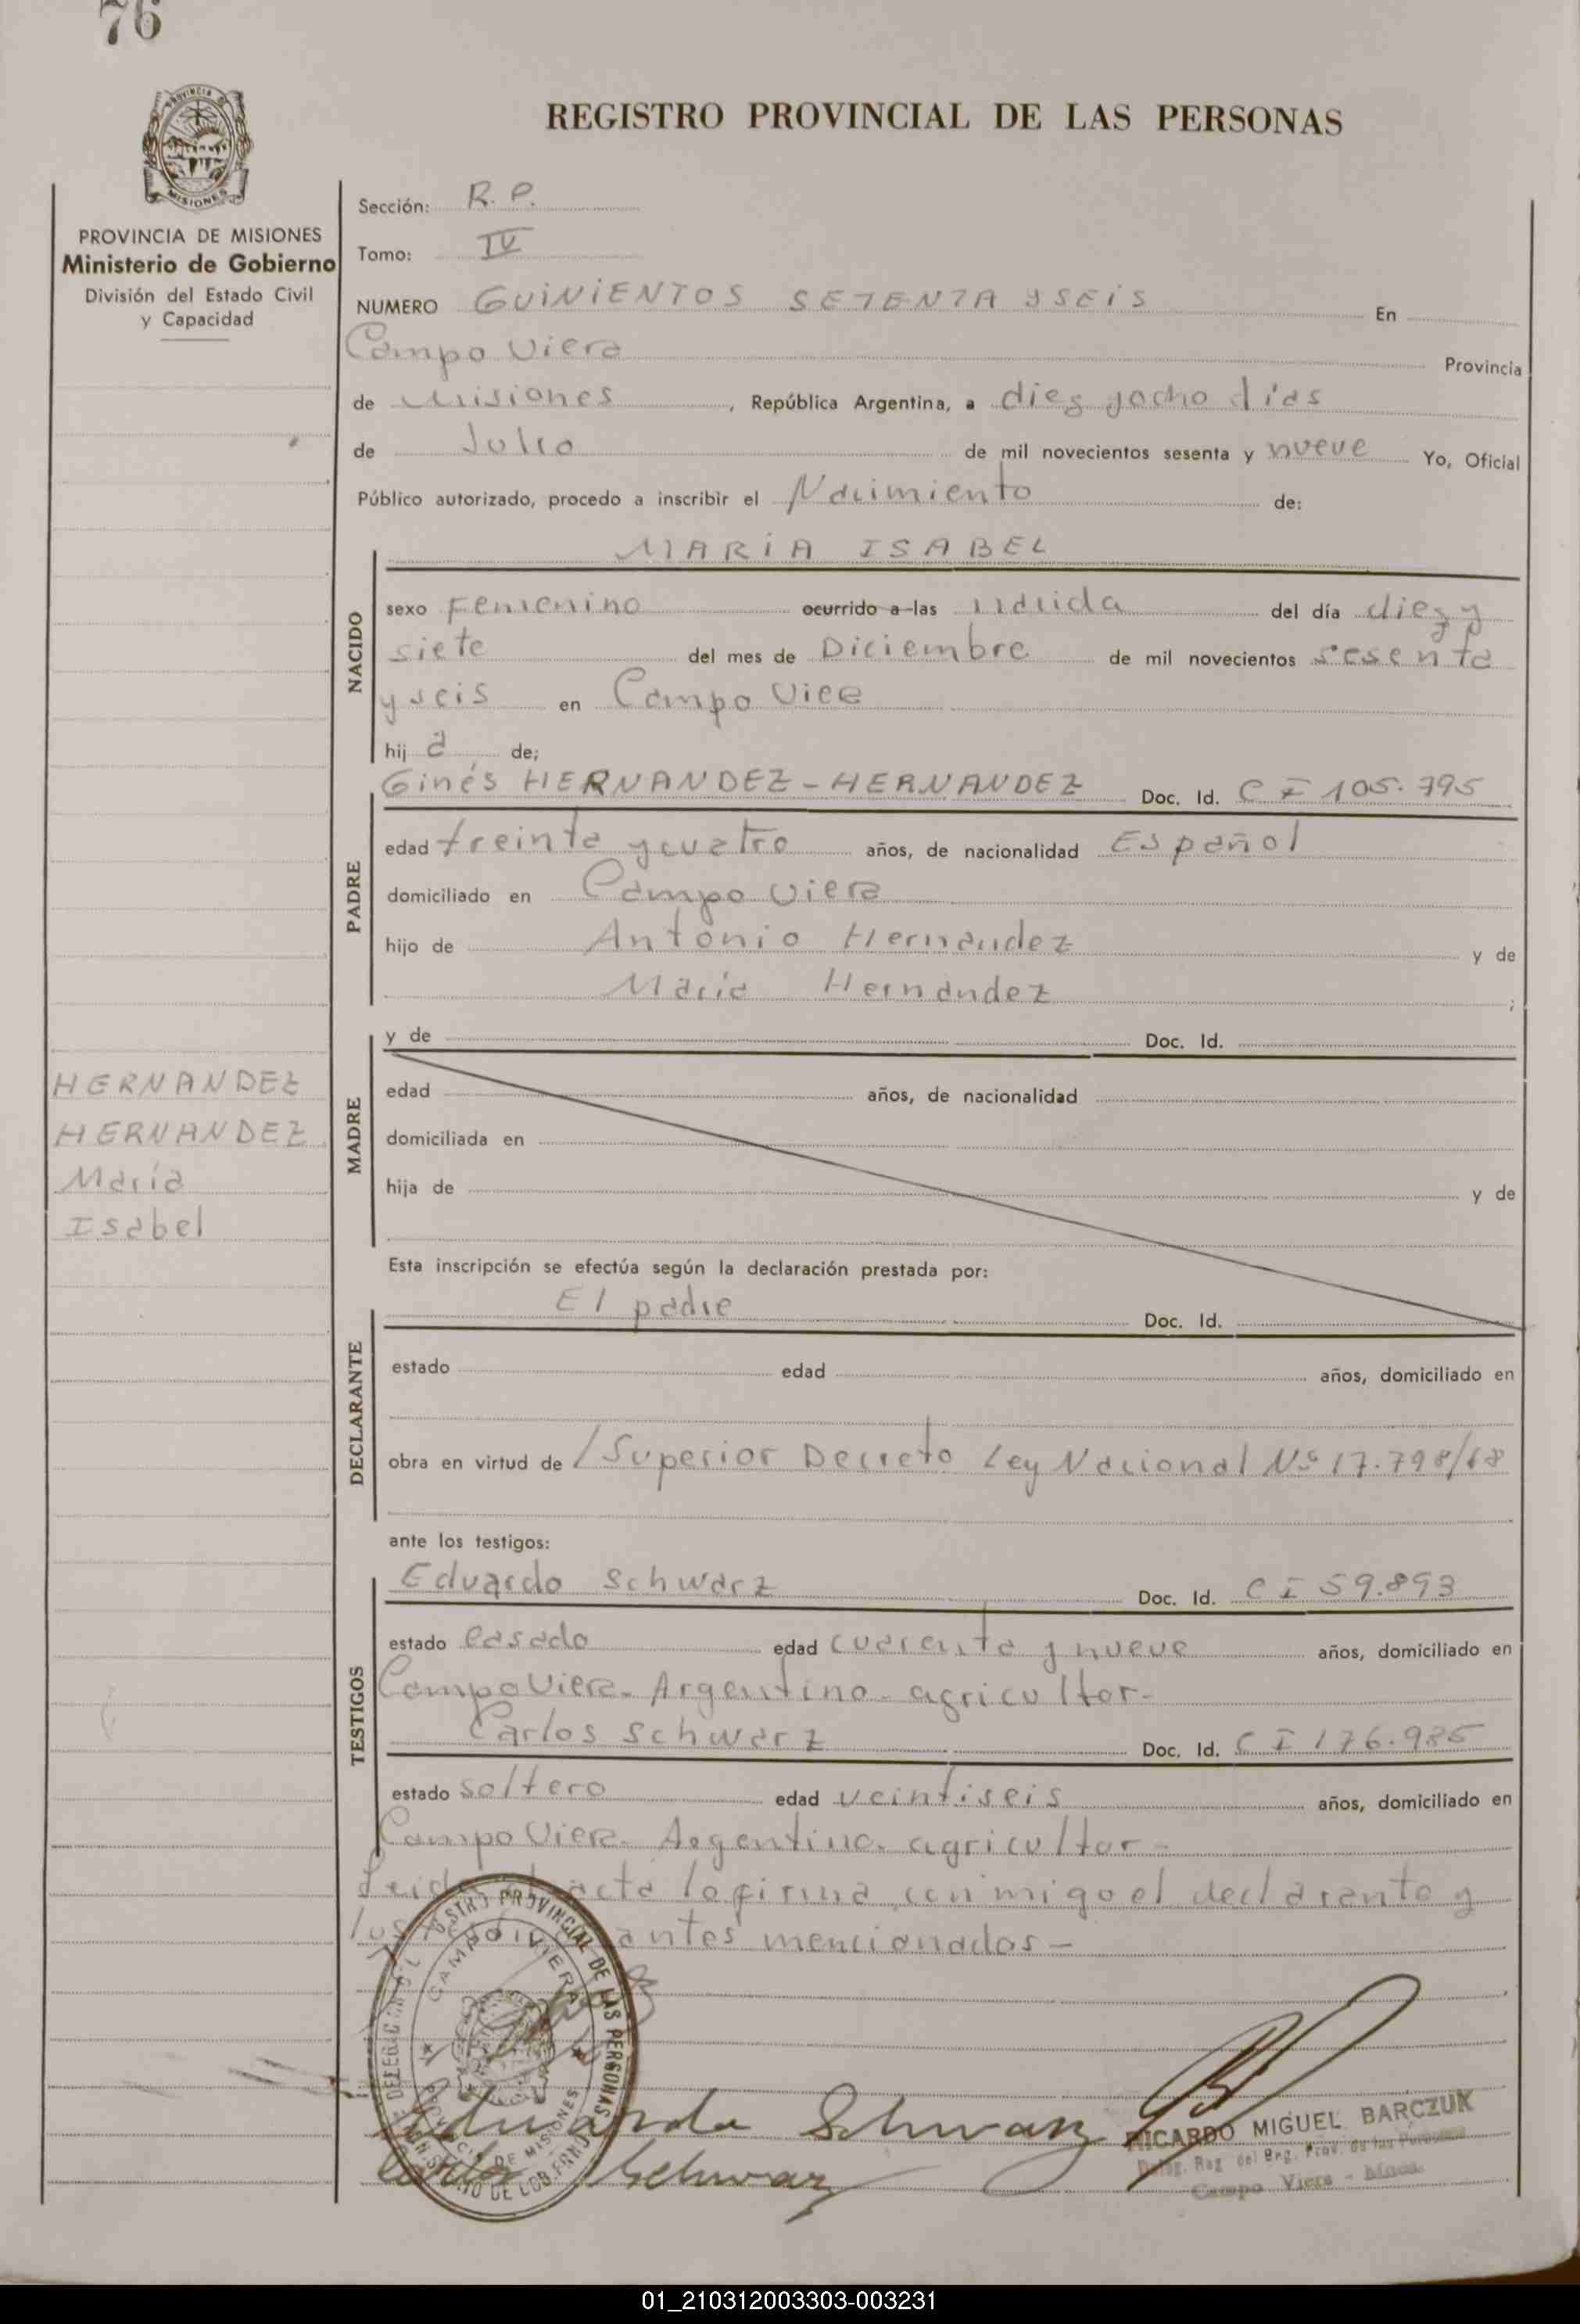 76
MISIONES
REGISTRO PROVINCIAL DE LAS PERSONAS
PROVINCIA DE MISIONES
Ministerio de Gobierno
División del Estado Civil
y Capacidad
Sección: R. P.
Tomo: IV
NUMERO QUINIENTOS SETENTA Y SEIS En
Campo Viera Provincia
de Misiones, República Argentina, a diez y ocho días
de Julio de mil novecientos sesenta y nueve Yo, Oficial
Público autorizado, procedo a inscribir el Nacimiento de:
MARIA ISABEL
NACIDO
sexo Femenino ocurrido a las del día diez y
siete del mes de Diciembre de mil novecientos sesenta
y seis en Campo Viera
hij a de;
PADRE
Ginés HERNANDEZ-HERNANDEZ Doc. Id. C I 105.795
edad treinta y cuatro años, de nacionalidad Español
domiciliado en Campo Viera
hijo de Antonio Hernández y de
María Hernández ;
MADRE
y de Doc. Id.
edad años, de nacionalidad
domiciliada en
hija de y de
HERNANDEZ
HERNANDEZ
María
Isabel
Esta inscripción se efectúa según la declaración prestada por:
El padre Doc. Id.
DECLARANTE
estado edad años, domiciliado en
obra en virtud de /Superior Decreto Ley Nacional Nº 17.798/68
ante los testigos:
TESTIGOS
Eduardo Schwarz Doc. Id. C I 59.893
estado casado edad cuarenta y nueve años, domiciliado en
Campo Viera- Argentino- agricultor-
Carlos Schwarz Doc. Id. C I 176.985
estado soltero edad veintiseis años, domiciliado en
Campo Viera- Argentino- agricultor-
Leida acta la firma conmigo el declarante y
los antes mencionados-
CAMPO VIERA
PROVINCIAL DE LAS PERSONAS
DE MISIONES
Eduardo Schwarz
Carlos Schwarz
RICARDO MIGUEL BARCZUK
Deleg. Reg. del Prov. de las Personas
Campo Viera - Mnes.
01_210312003303-003231